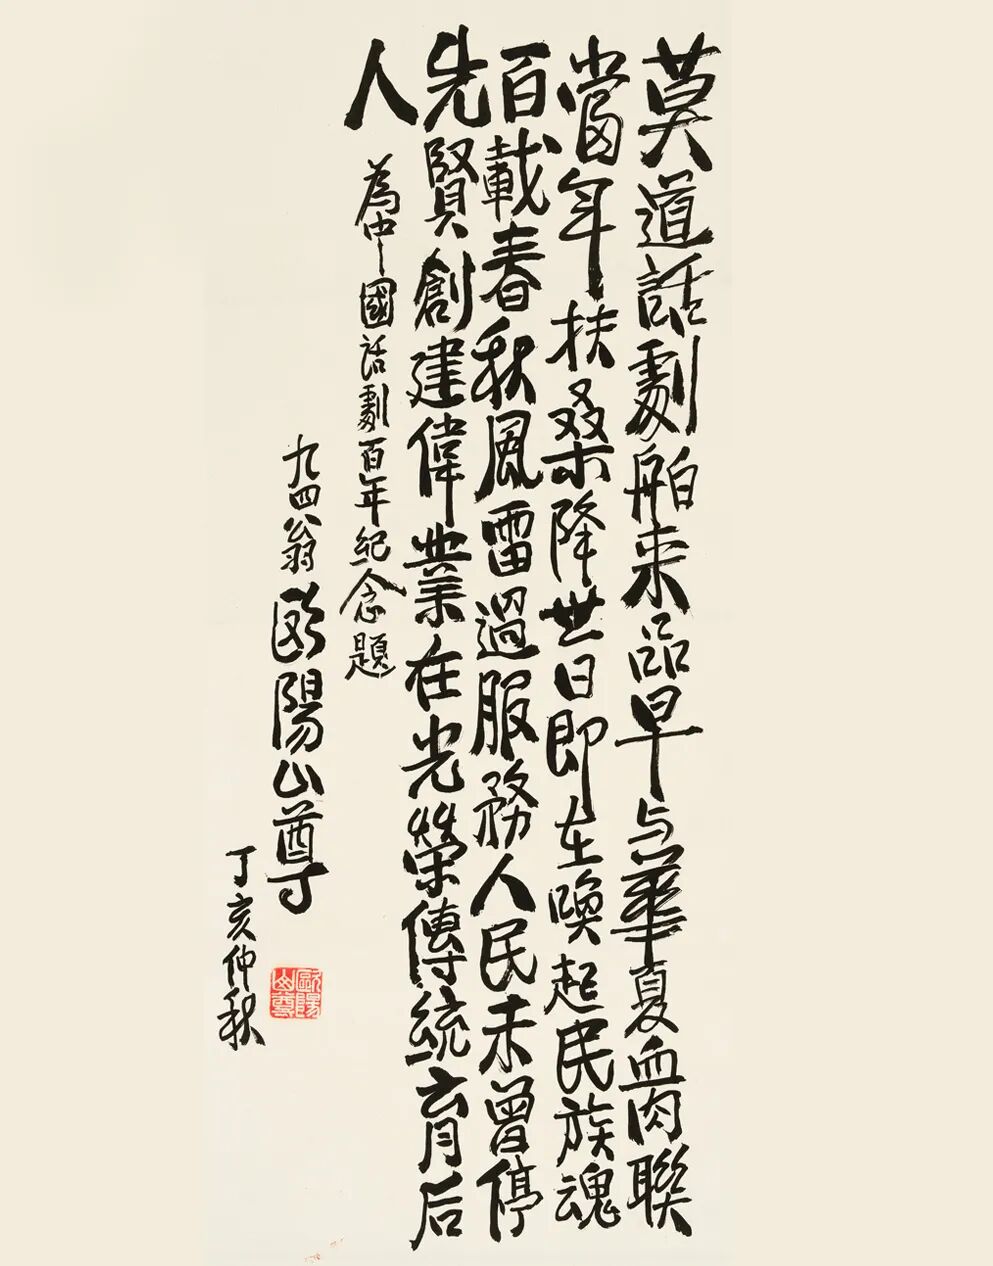 莫道話劇舶来品早与華夏血肉聯
當年扶桑降世日即在喚起民族魂
百載春秋風雷過服務人民未曾停
先賢創建偉業在光榮傳統育后
人
為中國話劇百年纪念題
九四翁歐陽山尊
丁亥仲秋
歐陽山尊